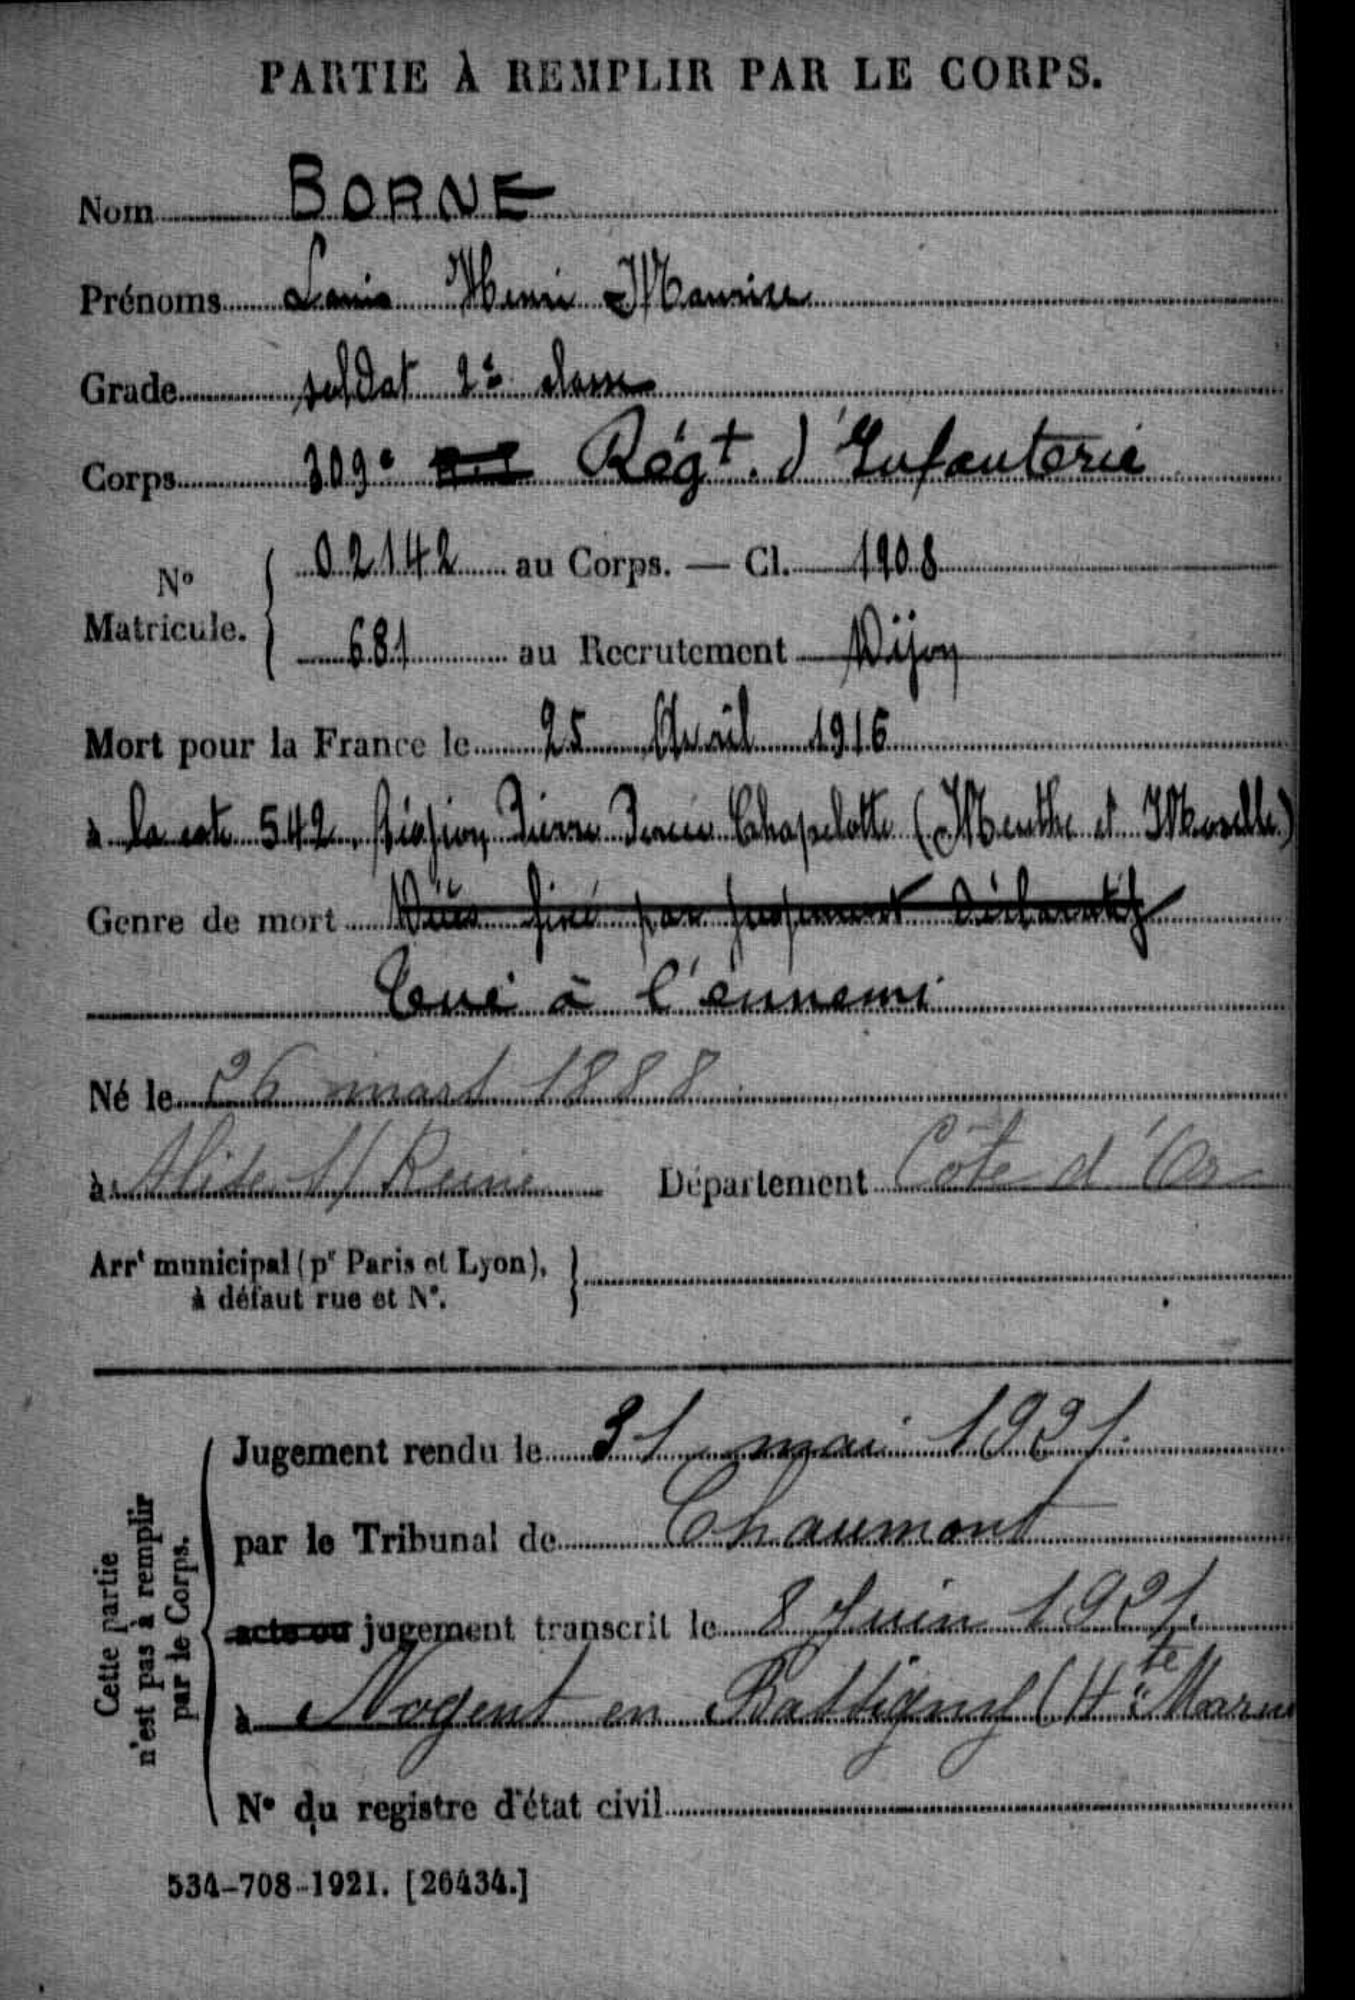 PARTIE À REMPLIR PAR LE CORPS.
Nom BORNE
Prénoms Louis Henri Maurice
Grade soldat 2e classe
Corps 309e R.I. Régt. d'Infanterie
N° Matricule. 02142 au Corps. — Cl. 1908
681 au Recrutement Dijon
Mort pour la France le 25 Avril 1916
à la cote 542, Région Pierre Percée Chapelotte (Meurthe et Moselle)
Genre de mort Décès fixé par jugement déclaratif
Tué à l'ennemi
Né le 26 mars 1888
à Alise S/ Reine Département Côte d'Or
Arrt municipal (pr Paris et Lyon),
à défaut rue et N°.
Cette partie
n'est pas à remplir
par le Corps.
Jugement rendu le 31 mai 1921.
par le Tribunal de Chaumont
acte ou jugement transcrit le 8 Juin 1921.
à Nogent en Bassigny (Hte Marne
N° du registre d'état civil
534-708-1921. [26434.]